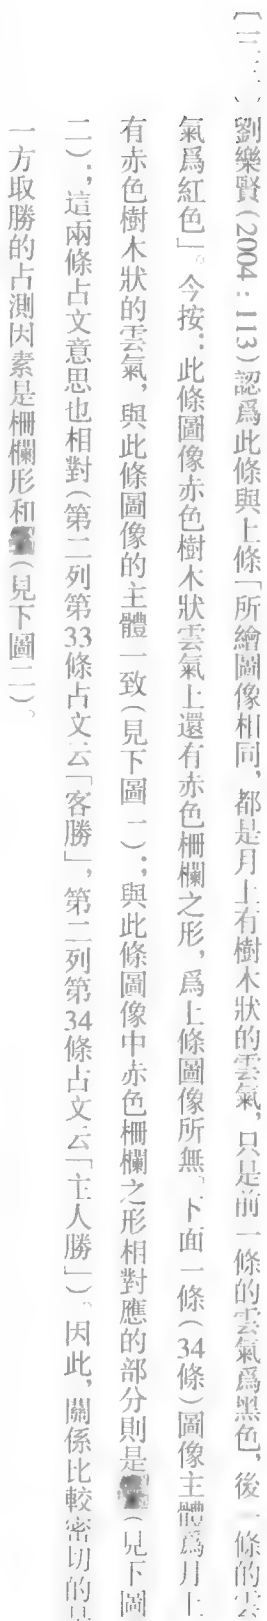 劉樂賢(2004:113)認爲此條與上條「所繪圖像相同，都是月上有樹木狀的雲氣，只是前一條的雲氣爲黑色，後一條的雲
氣爲紅色」。今按：此條圖像赤色樹木狀雲氣上還有赤色柵欄之形，爲上條圖像所無。下面一條(34條)圖像主體爲月上
有赤色樹木狀的雲氣，與此條圖像的主體一致(見下圖一)；與此條圖像中赤色柵欄之形相對應的部分則是(見下圖
二)；這兩條占文意思也相對(第二列第33條占文云「客勝」，第二列第34條占文云「主人勝」)。因此，關係比較密切的是
一方取勝的占測因素是柵欄形和(見下圖二)。